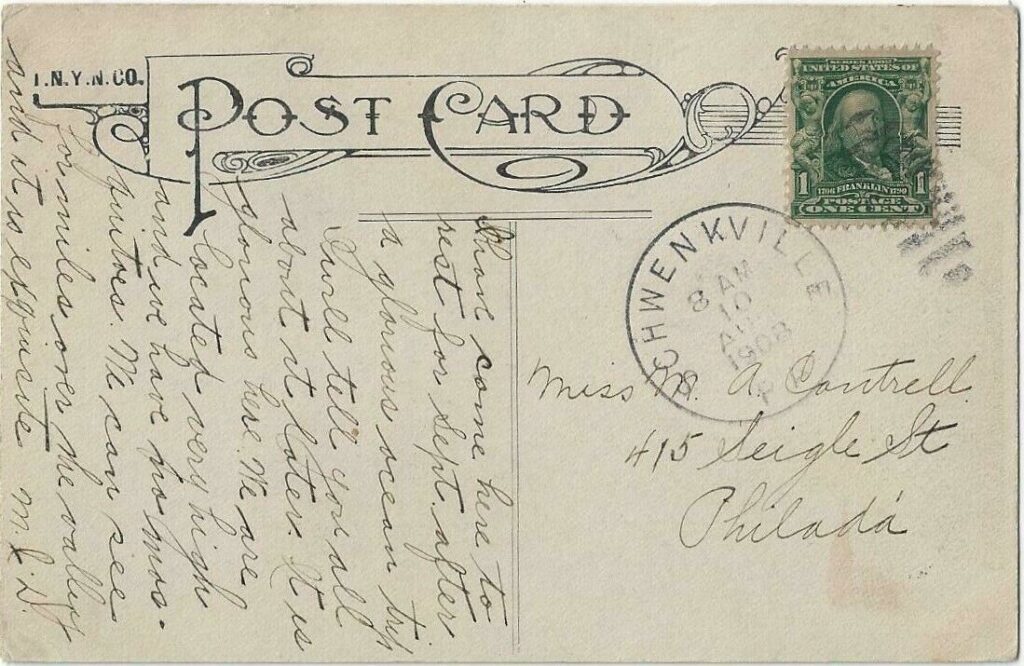 I.N.Y.N.CO.
POST CARD
SERIES 1902
UNITED STATES OF
AMERICA
1 1706 FRANKLIN 1790 1
POSTAGE
ONE CENT
SCHWENKVILLE
8 AM
10
1908
Miss M. A. Cantrell
415 Seigle St
Philada
I have come here to
rest for Sept. after
a glorious ocean trip
I will tell you all
about it later. It is
glorious here. We are
located very high
and we have no mos-
quitoes. We can see
for miles over the valley
and it is exquisite M. J. D.